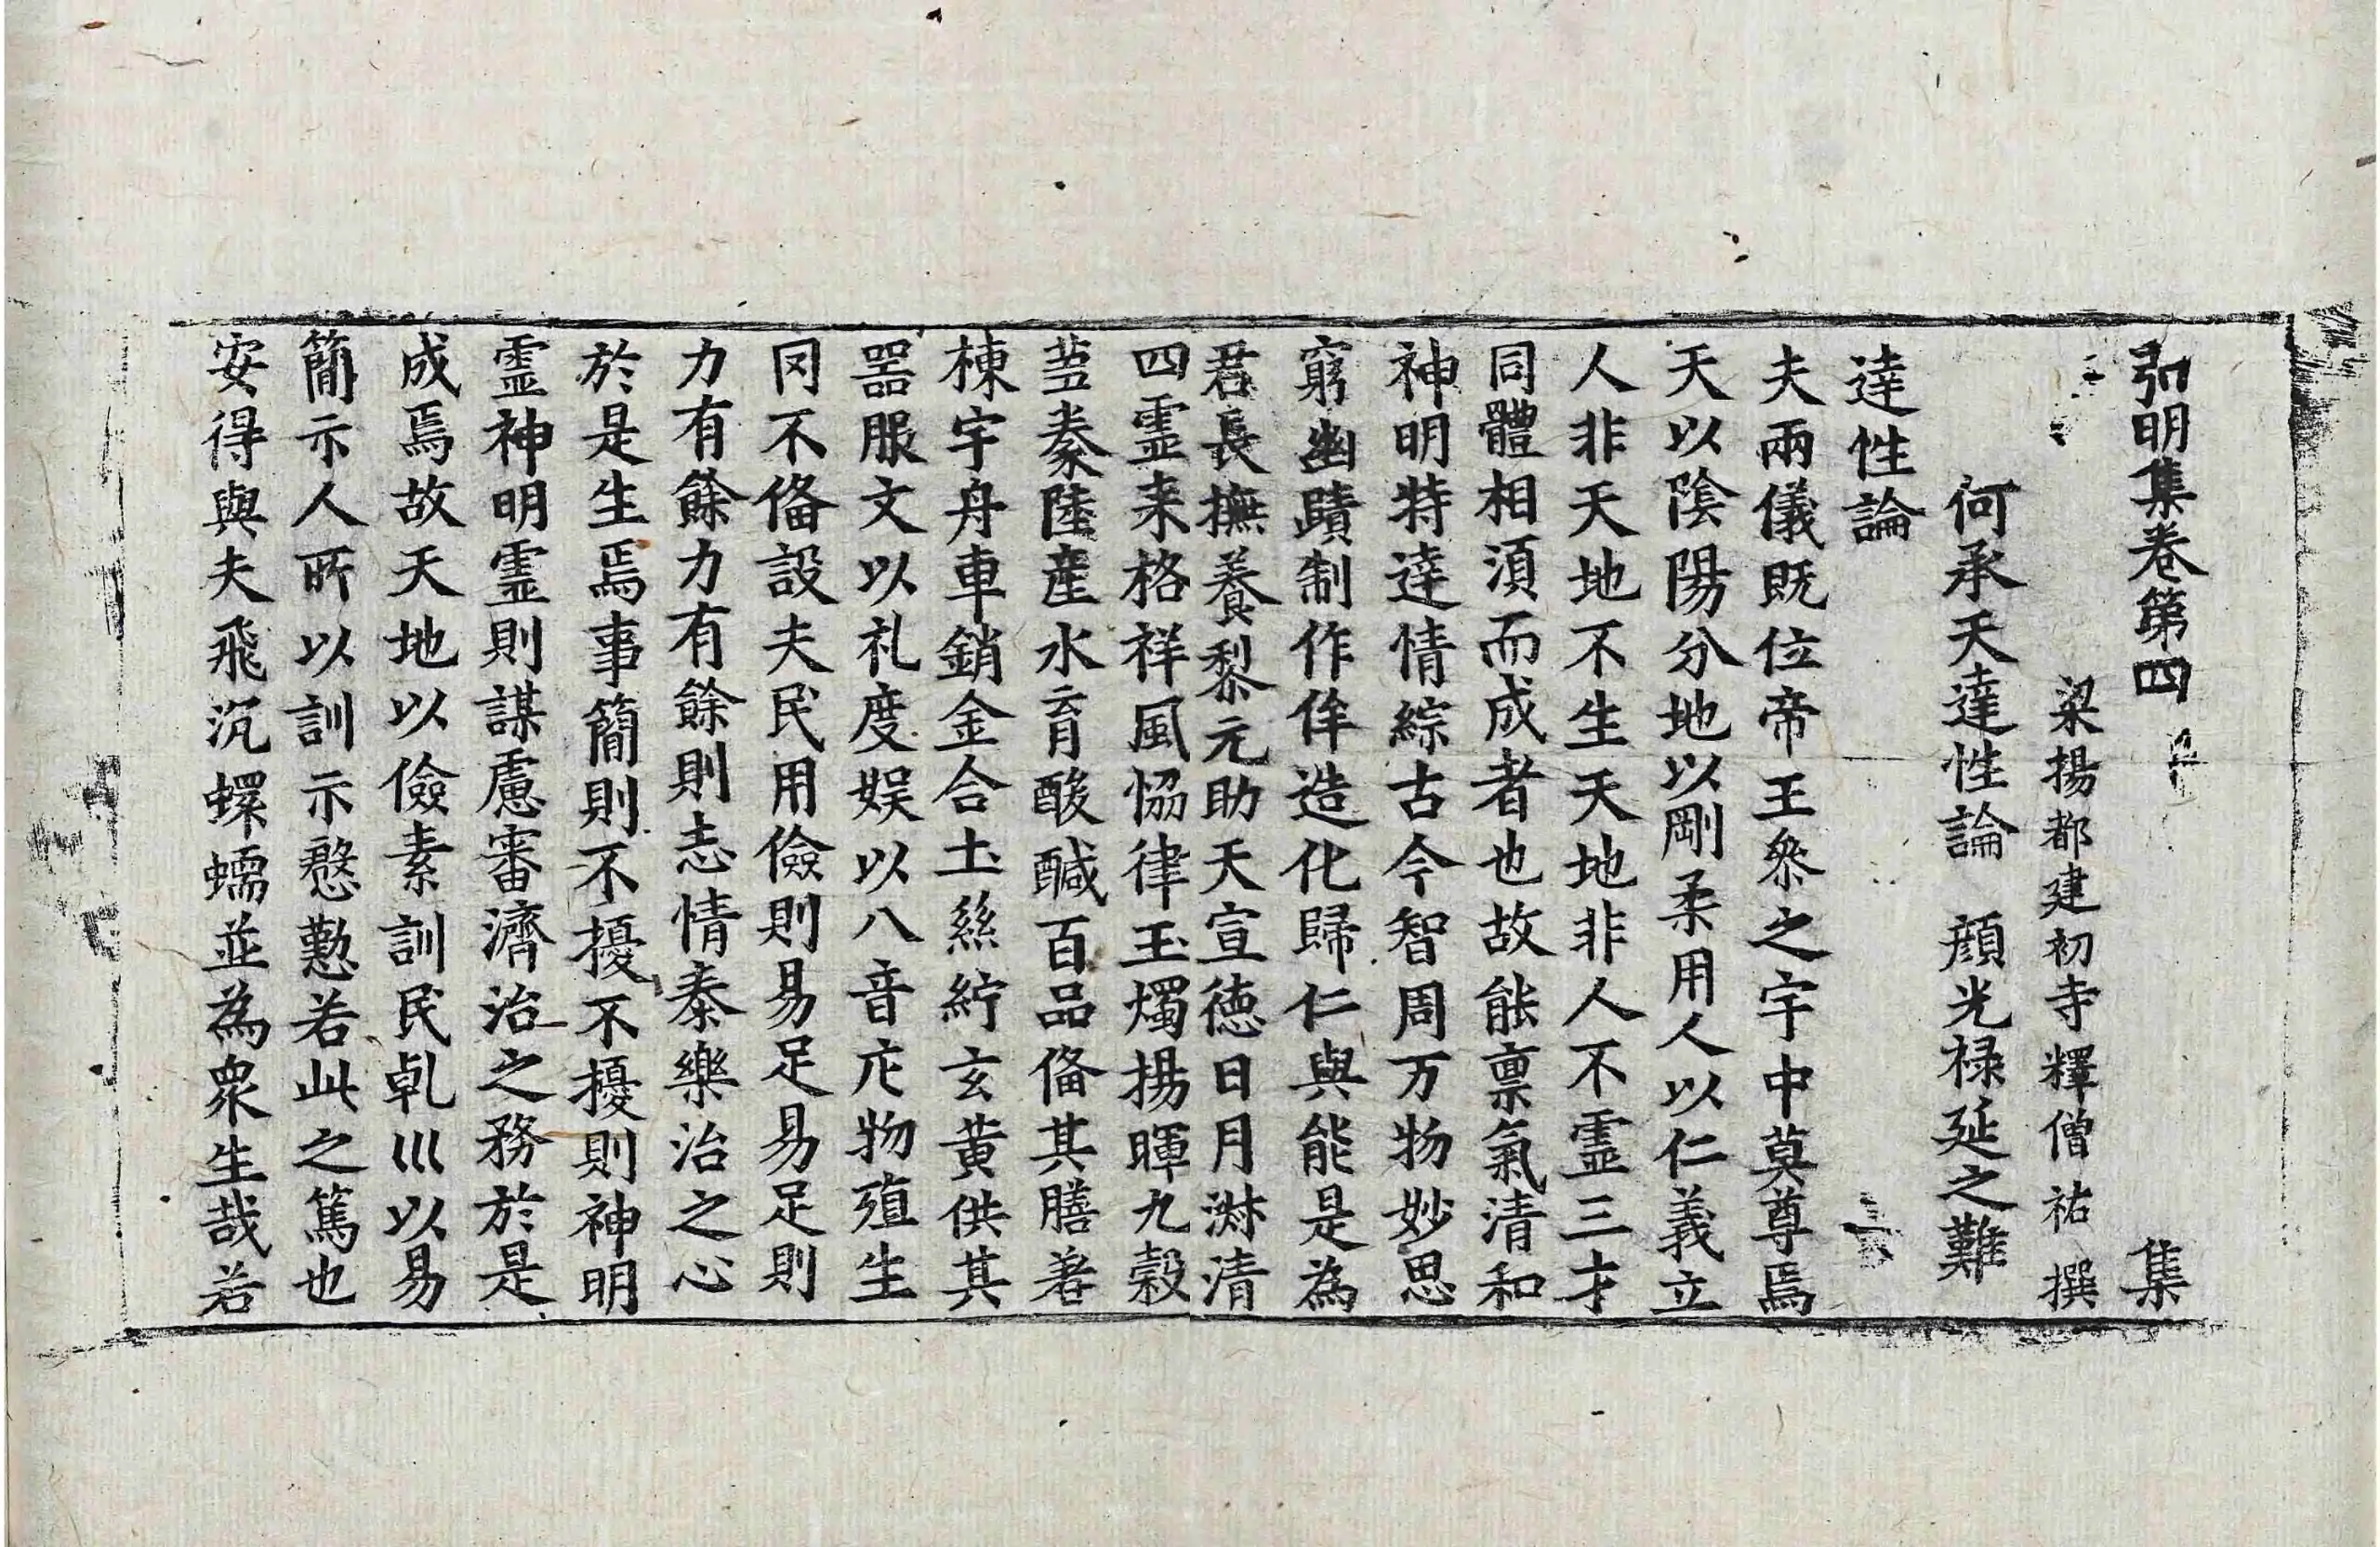 弘明集卷第四 集
梁揚都建初寺釋僧祐撰
何承天達性論 顔光禄延之難
達性論
夫兩儀既位帝王叅之宇中莫尊焉
天以陰陽分地以剛柔用人以仁義立
人非天地不生天地非人不霊三才
同體相湏而成者也故能禀氣清和
神明特達情綜古今智周万物妙思
窮幽賾制作侔造化歸仁與能是為
君長撫養黎元助天宣德日月淋清
四霊来格祥風恊律玉燭揚暉九穀
蒭豢陸産水育酸醎百品俻其膳羞
棟宇舟車銷金合土絲紵玄黄供其
器服文以礼度娱以八音庀物殖生
罔不俻設夫民用儉則易足易足則
力有餘力有餘則志情泰樂治之心
於是生焉事簡則不擾不擾則神明
霊神明霊則謀慮審濟治之務於是
成焉故天地以儉素訓民乹巛以易
簡示人所以訓示慇懃若此之篤也
安得與夫飛沉蠉蠕並為衆生哉若